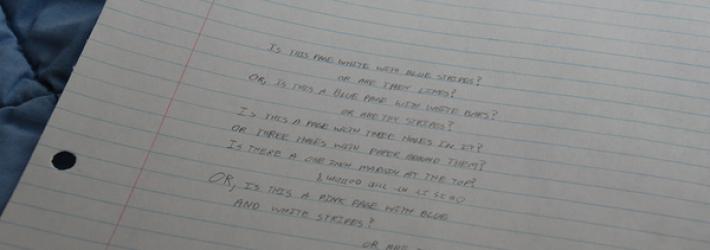 IS THIS PAGE WHITE WITH BLUE STRIPES?
OR ARE THEY LINES?
OR, IS THIS A BLUE PAGE WITH WHITE BARS?
OR ARE THY STRIPES?
IS THIS A PAGE WITH THREE HOLES IN IT?
OR THREE HOLES WITH PAPER AROUND THEM?
IS THERE A ONE INCH MARGIN AT THE TOP?
OR, IS THIS A PINK PAGE WITH BLUE
AND WHITE STRIPES?
OR ARE